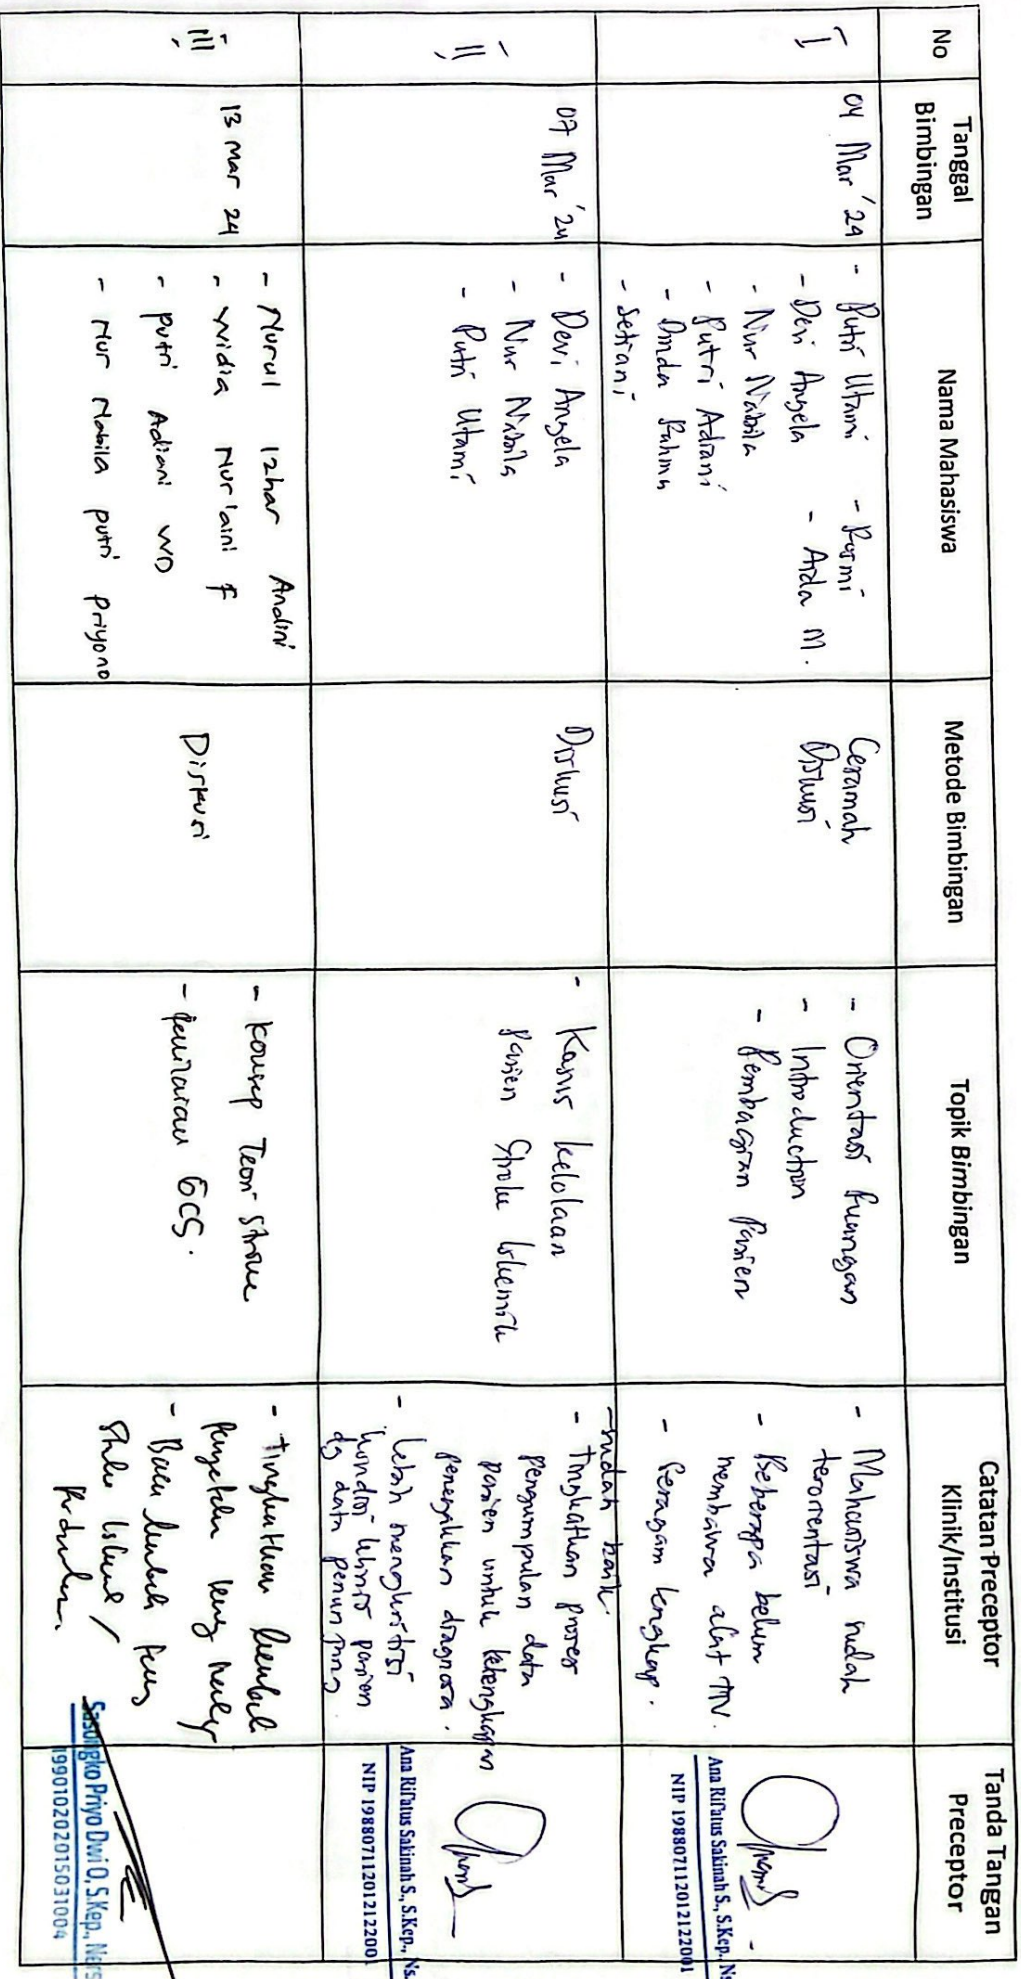 No
Tanggal
Bimbingan
Nama Mahasiswa
Metode Bimbingan
Topik Bimbingan
Catatan Preceptor
Klinik/Institusi
Tanda Tangan
Preceptor
I
04 Mar '24
- Putri Utami - Rusmi
- Devi Angela - Aida M.
- Nur Nabila
- Putri Adiani
- Dinda Rahma
- Setiani
Ceramah
Diskusi
- Orientasi Ruangan
- Introduction
- Pembagian Pasien
- Mahasiswa sudah
terorientasi
- Beberapa belum
membawa alat TTV.
- Seragam lengkap.
Ana Rif'atus Sakinah S., S.Kep., Ns
NIP 198807112012122001
II
07 Mar '24
- Devi Angela
- Nur Nabila
- Putri Utami
Diskusi
- Kasus kelolaan
pasien Stroke Iskemik
- sudah baik.
- Tingkatkan proses
pengumpulan data
pasien untuk kelengkapan
penegakkan diagnosa.
- lebih mengkritisi
kondisi klinis pasien
dg data penunjang
Ana Rif'atus Sakinah S., S.Kep., Ns.
NIP 198807112012122001
III
13 Mar 24
- Nurul Izhar Andini
- Widia Nur'aini F
- Putri Adiani WD
- Nur Nabila Putri Priyono
Diskusi
- Konsep Teori Stroke
- Penilaian GCS.
- Tingkatkan kembali
- Baca
Sasongko Priyo Dwi O, S.Kep., Ners
199010202015031004